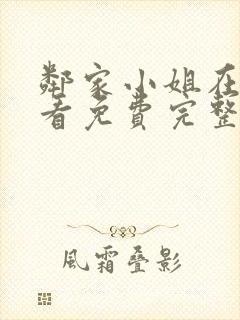 鄰家小姐在
看免費完整
風霜叠影